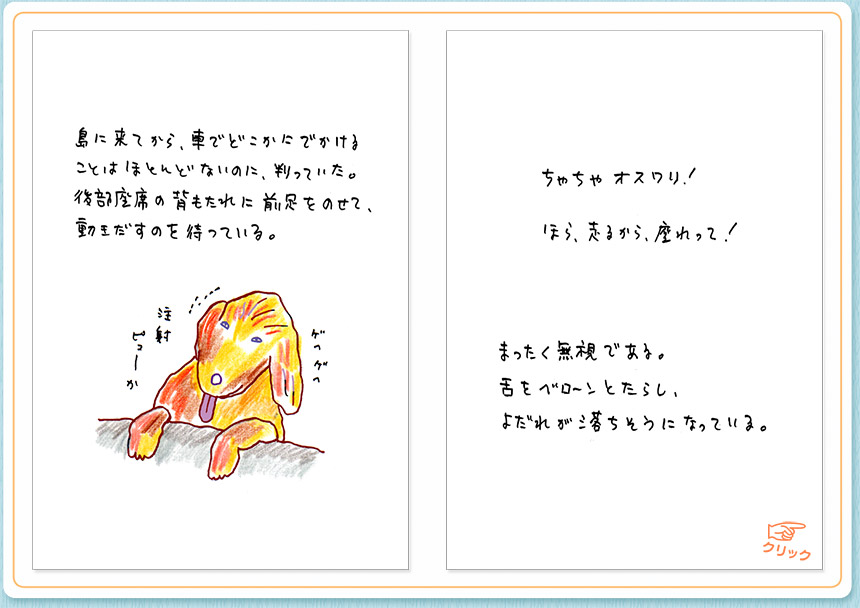 島に来てから、車でどこかにでかける
ことはほとんどないのに、判っていた。
後部座席の背もたれに前足をのせて、
動きだすのを待っている。
注射
ピューか
ゲヘゲヘ
ちゃちゃ オスワリ!
ほら、走るから、座れって!
まったく無視である。
舌をベローンとたらし、
よだれが落ちそうになっている。
クリック